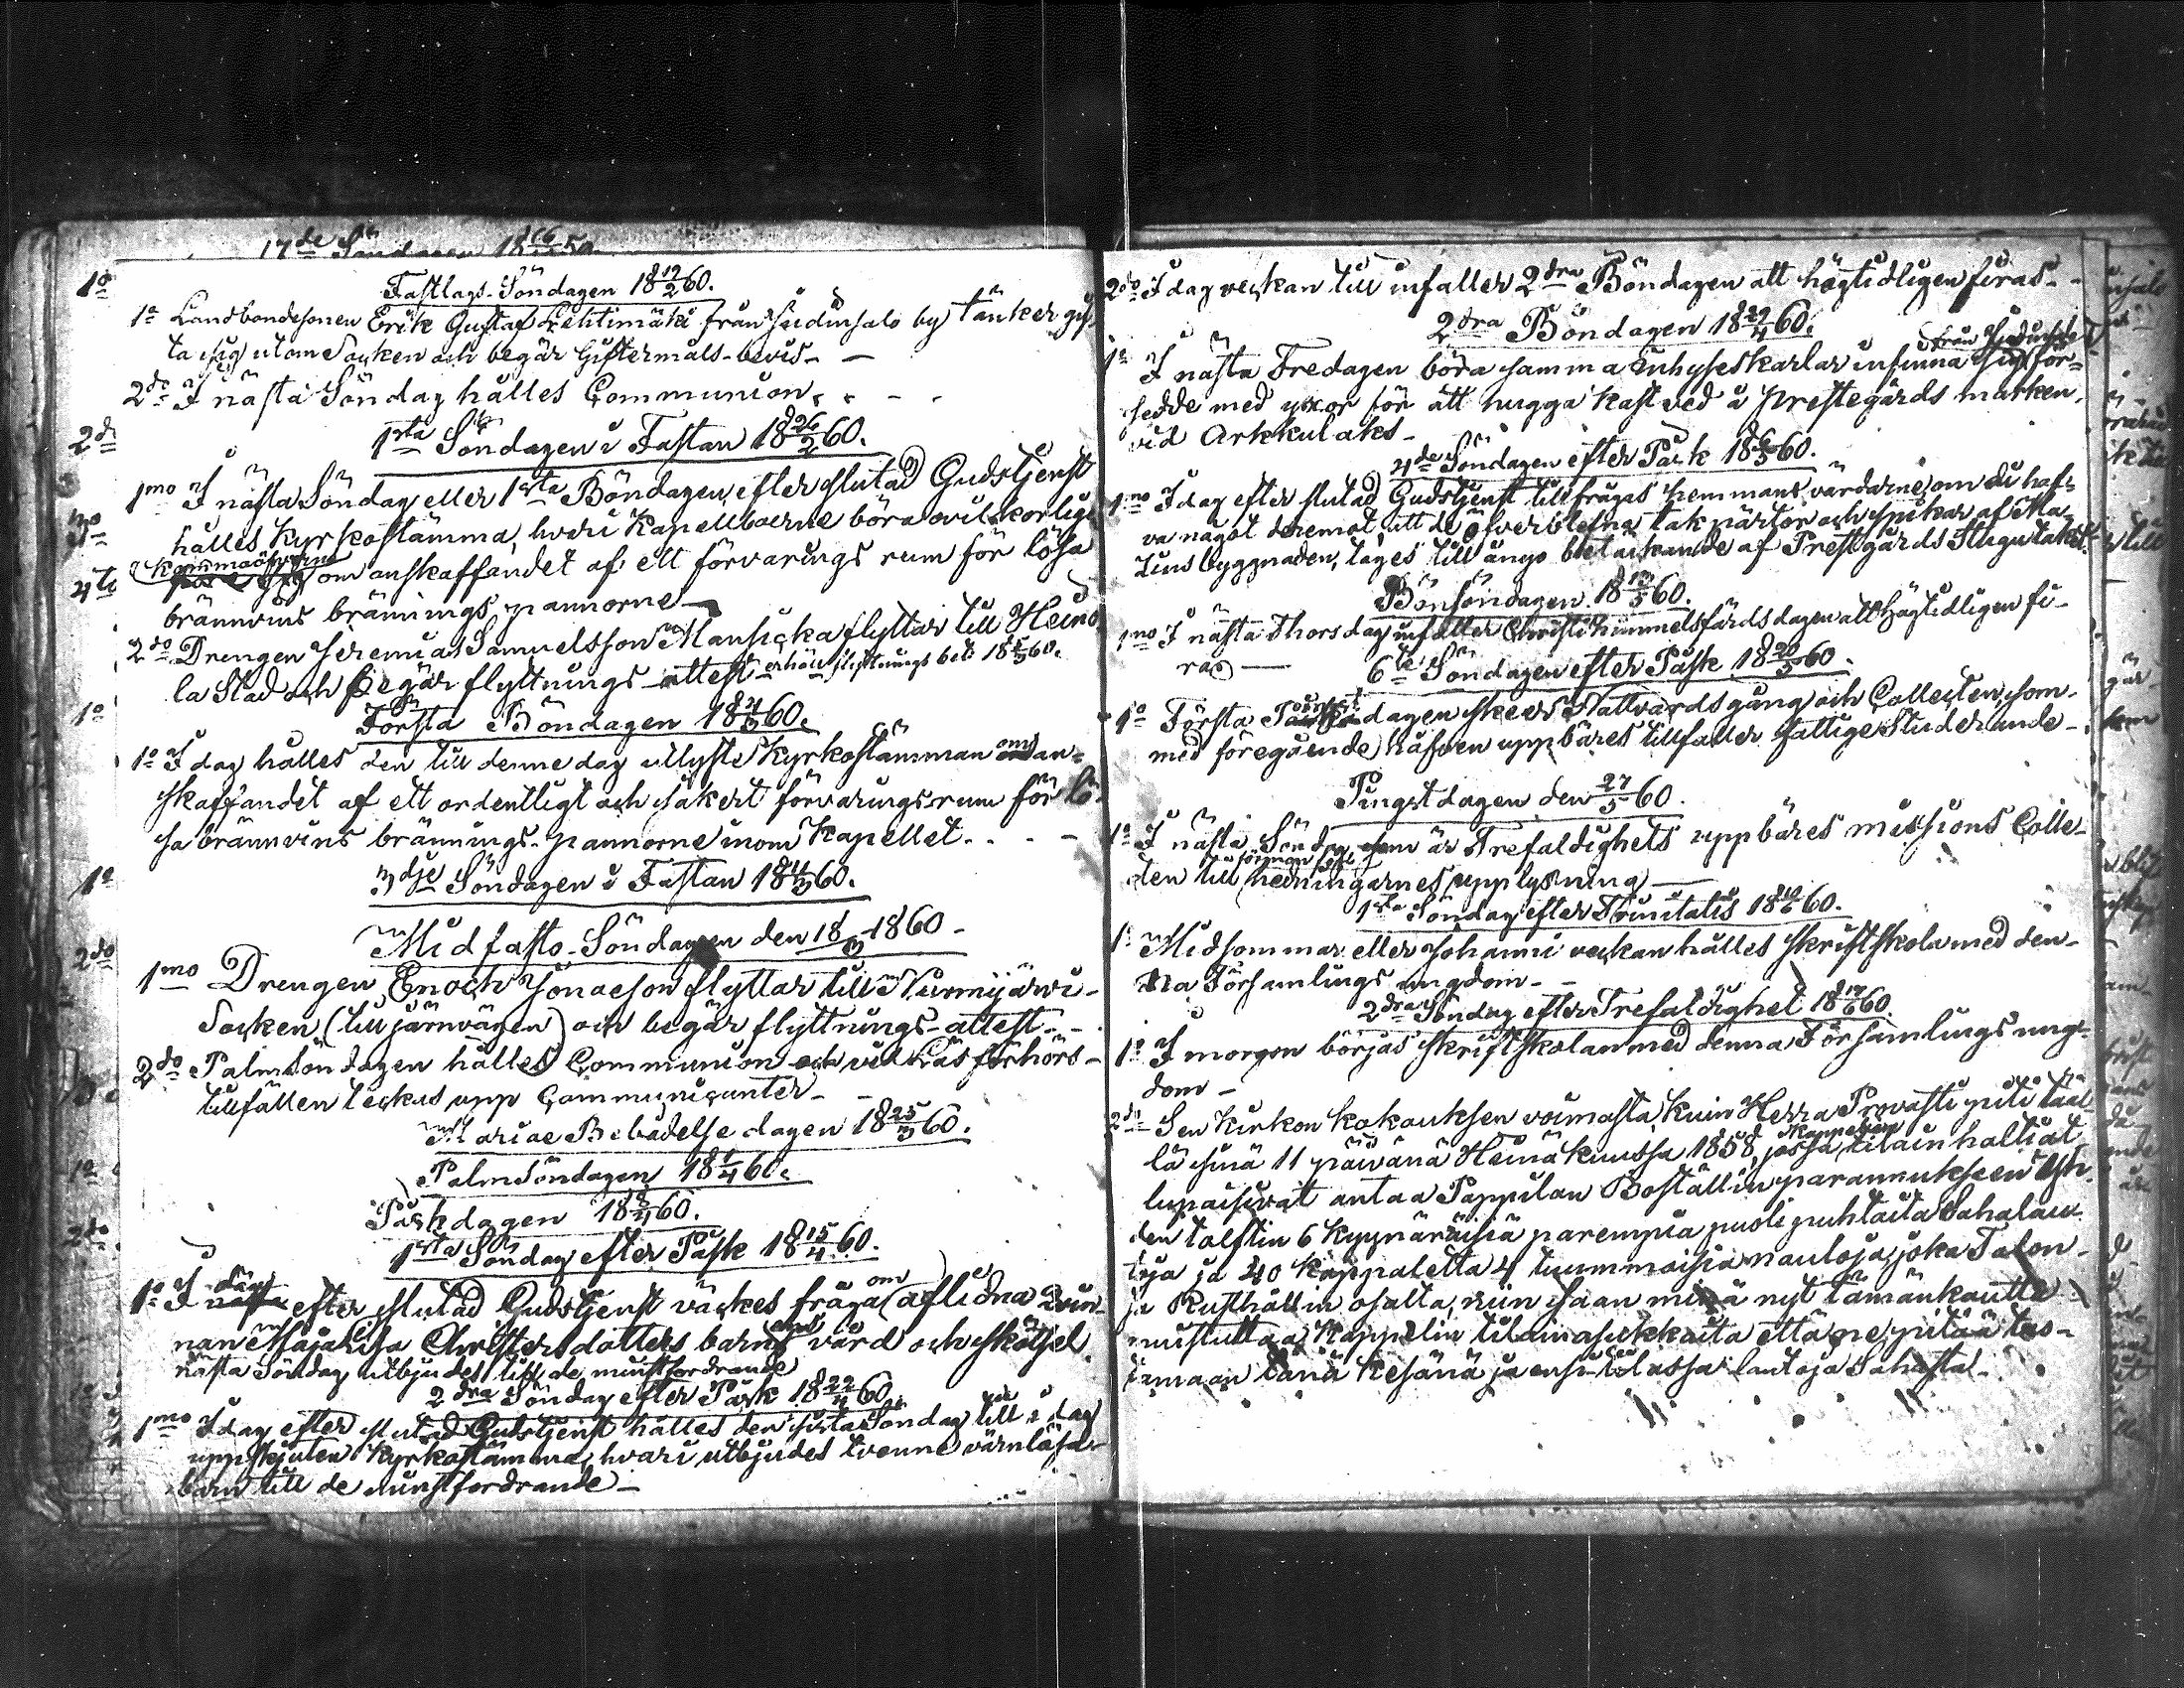 17de Söndagen
Fastlags-Söndagen 18 19/2 60.
1o Landbondesonen Erik Gustaf Lehtimäki från by tänker gif-
ta sig utom Socken och begär Giftermåls-bevis –
2do I nästa Söndag hålles Communion. . - -
1sta Söndagen i Fastan 18 26/2 60.
1mo I nästa Söndag eller 1sta Böndagen, efter slutad Gudstjenst
hålles Kyrkostämma, hvari Kapellboerne böra ovilkorlige
om anskaffandet af ett förvarings rum för lösa
brännvins brännings pannorne –
2do Drengen Jeremias Samuelsson Mansicka flyttar till Heino
la Stad och begär flyttnings-attest erhöll flyttnings bet.
Första Böndagen 18 4/3 60.
1o I dag hålles den till denne dag utlyste Kyrkostämman om an-
skaffandet af ett ordentligt och säkert förvaringsrum för lö-
sa brännvins brännings-pannorne inom Kapellet. . . -
3dje Söndagen i Fastan 18 11/3 60.
Midfasto-Söndagen den 18/3 1860 –
1mo Drengen Enoch Jonaeson flyttar till Nurmijärvi-
Socken (till järnvägen) och begär flyttnings-attest. -
2do Palmsöndagen hålles Communion och vid Läsförhörs-
tillfällen teckas upp Communicanter –
Mariae Bebådelse dagen 18 25/3 60.
Palmsöndagen 18 1/4 60.
Påsk dagen 18 8/4 60.
1sta Söndag efter Påsk 18 15/4 60.
1o I dag efter slutad Gudstjenst väckes fråga om aflidna Qvin-
nan Maja Lisa Christersdotters barns vård och skötsel.
nästa Söndag utbjudes till de minstfordrande
2dra Söndag efter Påsk 18 22/4 60.
1mo I dag efter slutad Gudstjenst hålles den sista Söndag till i dag
uppskjuten Kyrkostämma, hvari utbjudes tvenne värnlösa
barn till de minstfordrande –
2do I dag veckan till infaller 2dra Böndagen att högtidligen firas –
2dra Böndagen 18 29/4 60.
1o I nästa Fredagen böra samma inhyseskarlar från infinna sig för-
sedde med yxor för att hugga kastved å Prestegårds marken
vid Arkkulaks –
4de Söndagen efter Påsk 18 6/5 60.
1mo I dag efter slutad Gudstjenst tillfrågas hemmans vårdarne om du haf-
va något deremot, att de öfverblefna takpärtor och spikar af Ma-
tins byggnaden, tages till ångo betäckande af Prestgårds Stugu taket.
Bönsöndagen 18 13/5 60.
1mo I nästa Thorsdag infaller Christi himmelsfärds dagen att högtidligen fi-
ras –
6te Söndagen efter Påsk 18 20/5 60.
1o Första Pingst dagen skeer Nattvardsgång och Collecten, som
med föregående håfven uppbäres tillfaller fattige Studerande –
Pingstdagen den 27/5 60.
1o I nästa Söndag som är Trefaldighets uppbäres missions Colle-
den till hedningarnes upplysning –
1sta Söndag efter Trinitatis 18 10/6 60.
1o Midsommar eller Johanni veckan hålles skriftskola med den-
na Församlings ungdom –
2dra Söndag efter Trefaldighet 18 17/6 60.
1o I morgon börjas skriftskolan med denna Församlings ung-
dom –
2do Sen Kirkon kokouksen voimasta, kuin Herra Provasti piti tääl-
lä sinä 11 päivänä Heinäkuussa 1858, jossa Kappelin tilain haltiat
lupaisivat antaa Pappilan Boställin parannukseen
den tolftin 6 kyynäräisiä parempia puoli puhtaita Sahalau-
toja ja 40 kappaletta 4 tuummaisia nauloja, joka Talon
ja Rusthållin osalta, niin saan minä nyt tämänkautte
muistuttaa Kappelin tilainasukkaita että ne pitää tuo-
tamaan tänä kesänä ja ensi-tilassa lautoja Sahasta –